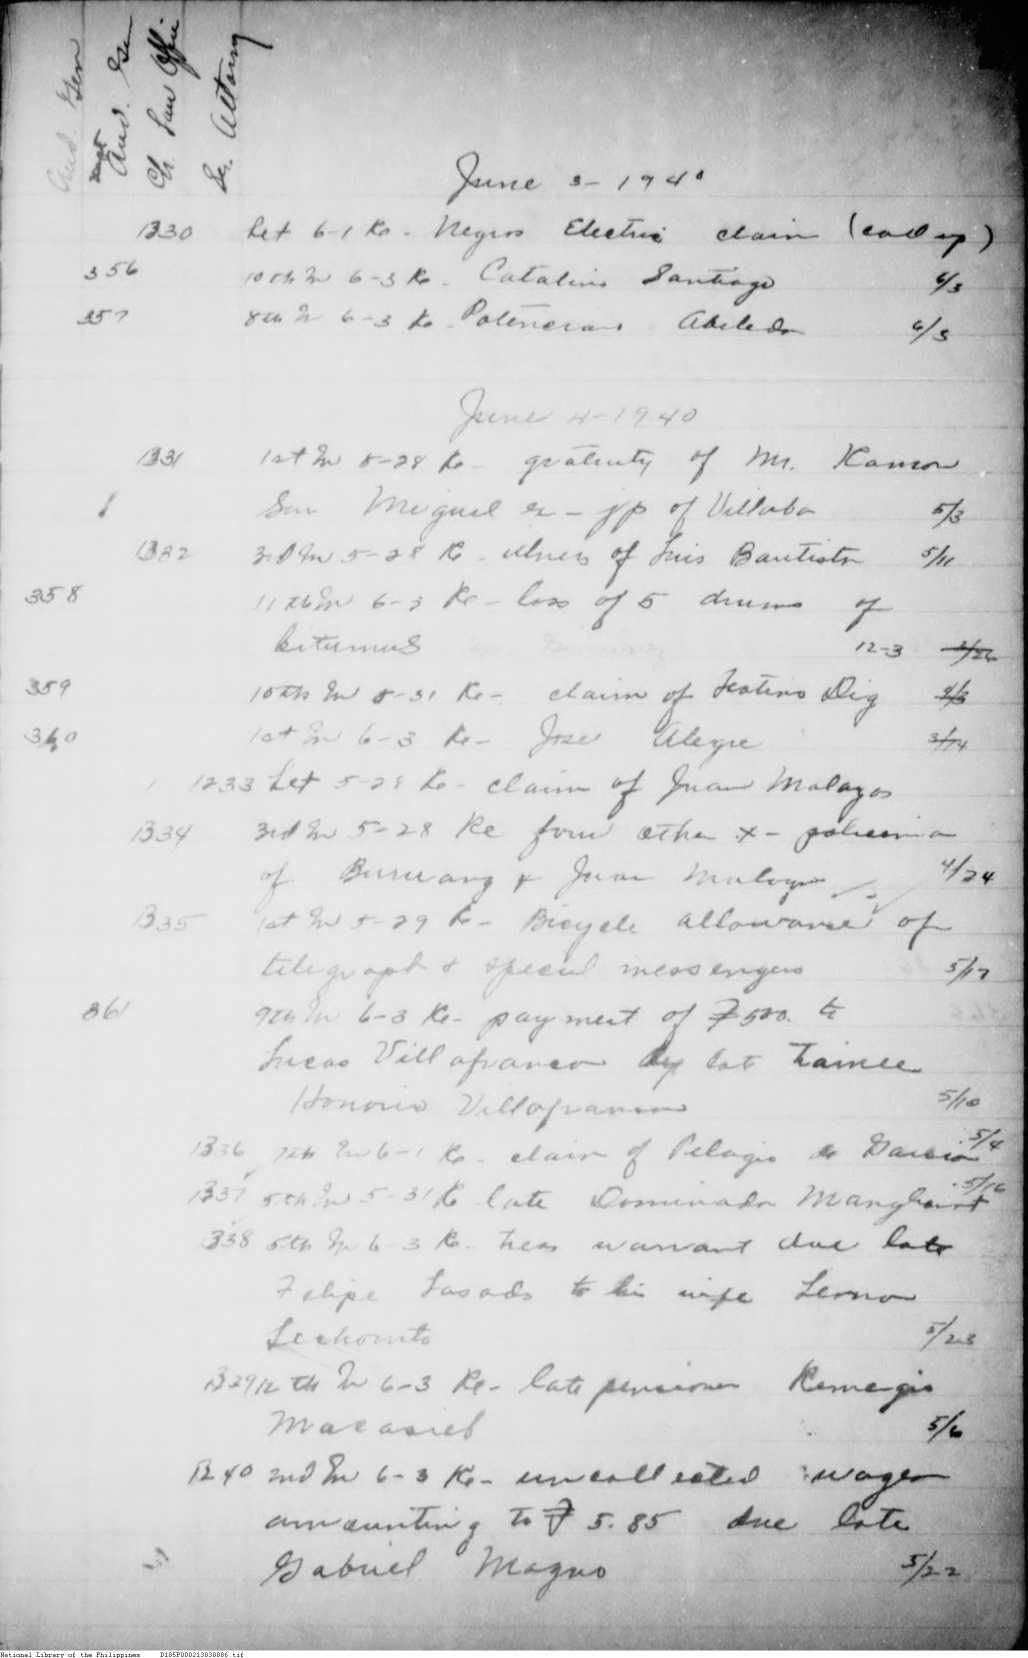 Aud. Gen
Asst Aud. Gen
Ch. Law Office
Sr. Attorney
June 3-1940
1330 Let 6-1 Re- Negros Electric claim (
356 10th In 6-3 Re- Catalino Santiago 6/3
357 8th In 6-3 Re- Potenciano Abeleda 6/3
June 4-1940
1331 1st In 5-28 Re- gratuity of Mr. Ramon
San Miguel ex-jp of Villaba 5/3
1332 3rd In 5-28 Re- illness of Luis Bautista 5/11
358 11th In 6-3 Re- loss of 5 drums of
bitumus 12-3 2/26
359 10th In 5-31 Re- claim of Dig
360 1st In 6-3 Re- Jose Alegre 3/14
1 1233 Let 5-28 Re- claim of Juan Malayos
1334 3rd In 5-28 Re four other x- policemen
of Busuang & Juan 4/24
1335 1st In 5-29 Re- Bicycle allowance of
telegraph & special messengers 5/17
361 9th In 6-3 Re- payment of ₱500. to
Lucas Villafranca by late trainee
Honorio Villafranca 5/10
1336 7th In 6-1 Re- claim of Pelagio de Garcia 5/4
1337 5th In 5-31 Re late Dominador 5/16
1338 5th In 6-3 Re- treas warrant due late
Felipe Losado to his wife Leonor
5/23
1339 12th In 6-3 Re- late pensioner Remegio
Macasieb 5/6
1240 2nd In 6-3 Re- uncollected wages
amounting to ₱5.85 due late
Gabriel Magno 5/22
National Library of the Philippines D185P000213838086.tif